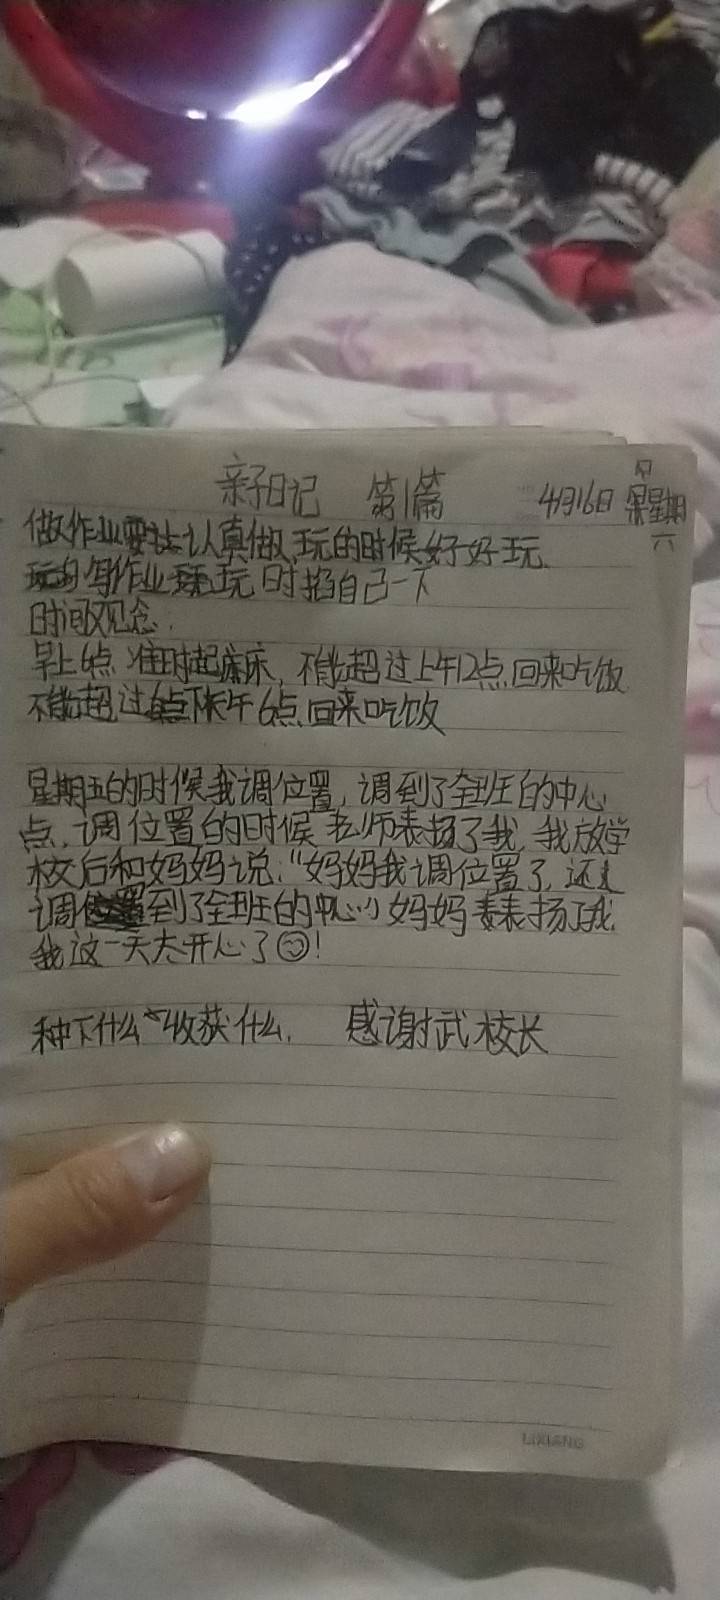 亲子日记 第1篇 4月16日 星期
六
做作业要认真做、玩的时候好好玩
写作业玩时掐自己一下
时间观念：
早上6点准时起床，不能超过上午12点回来吃饭
不能超过下午6点回来吃饭
星期五的时候我调位置，调到了全班的中心
点，调位置的时候老师表扬了我，我放学
校后和妈妈说：“妈妈我调位置了，还是
调到了全班的中心”妈妈表扬了我，
我这一天太开心了！
种下什么收获什么， 感谢武校长
LIXIANG